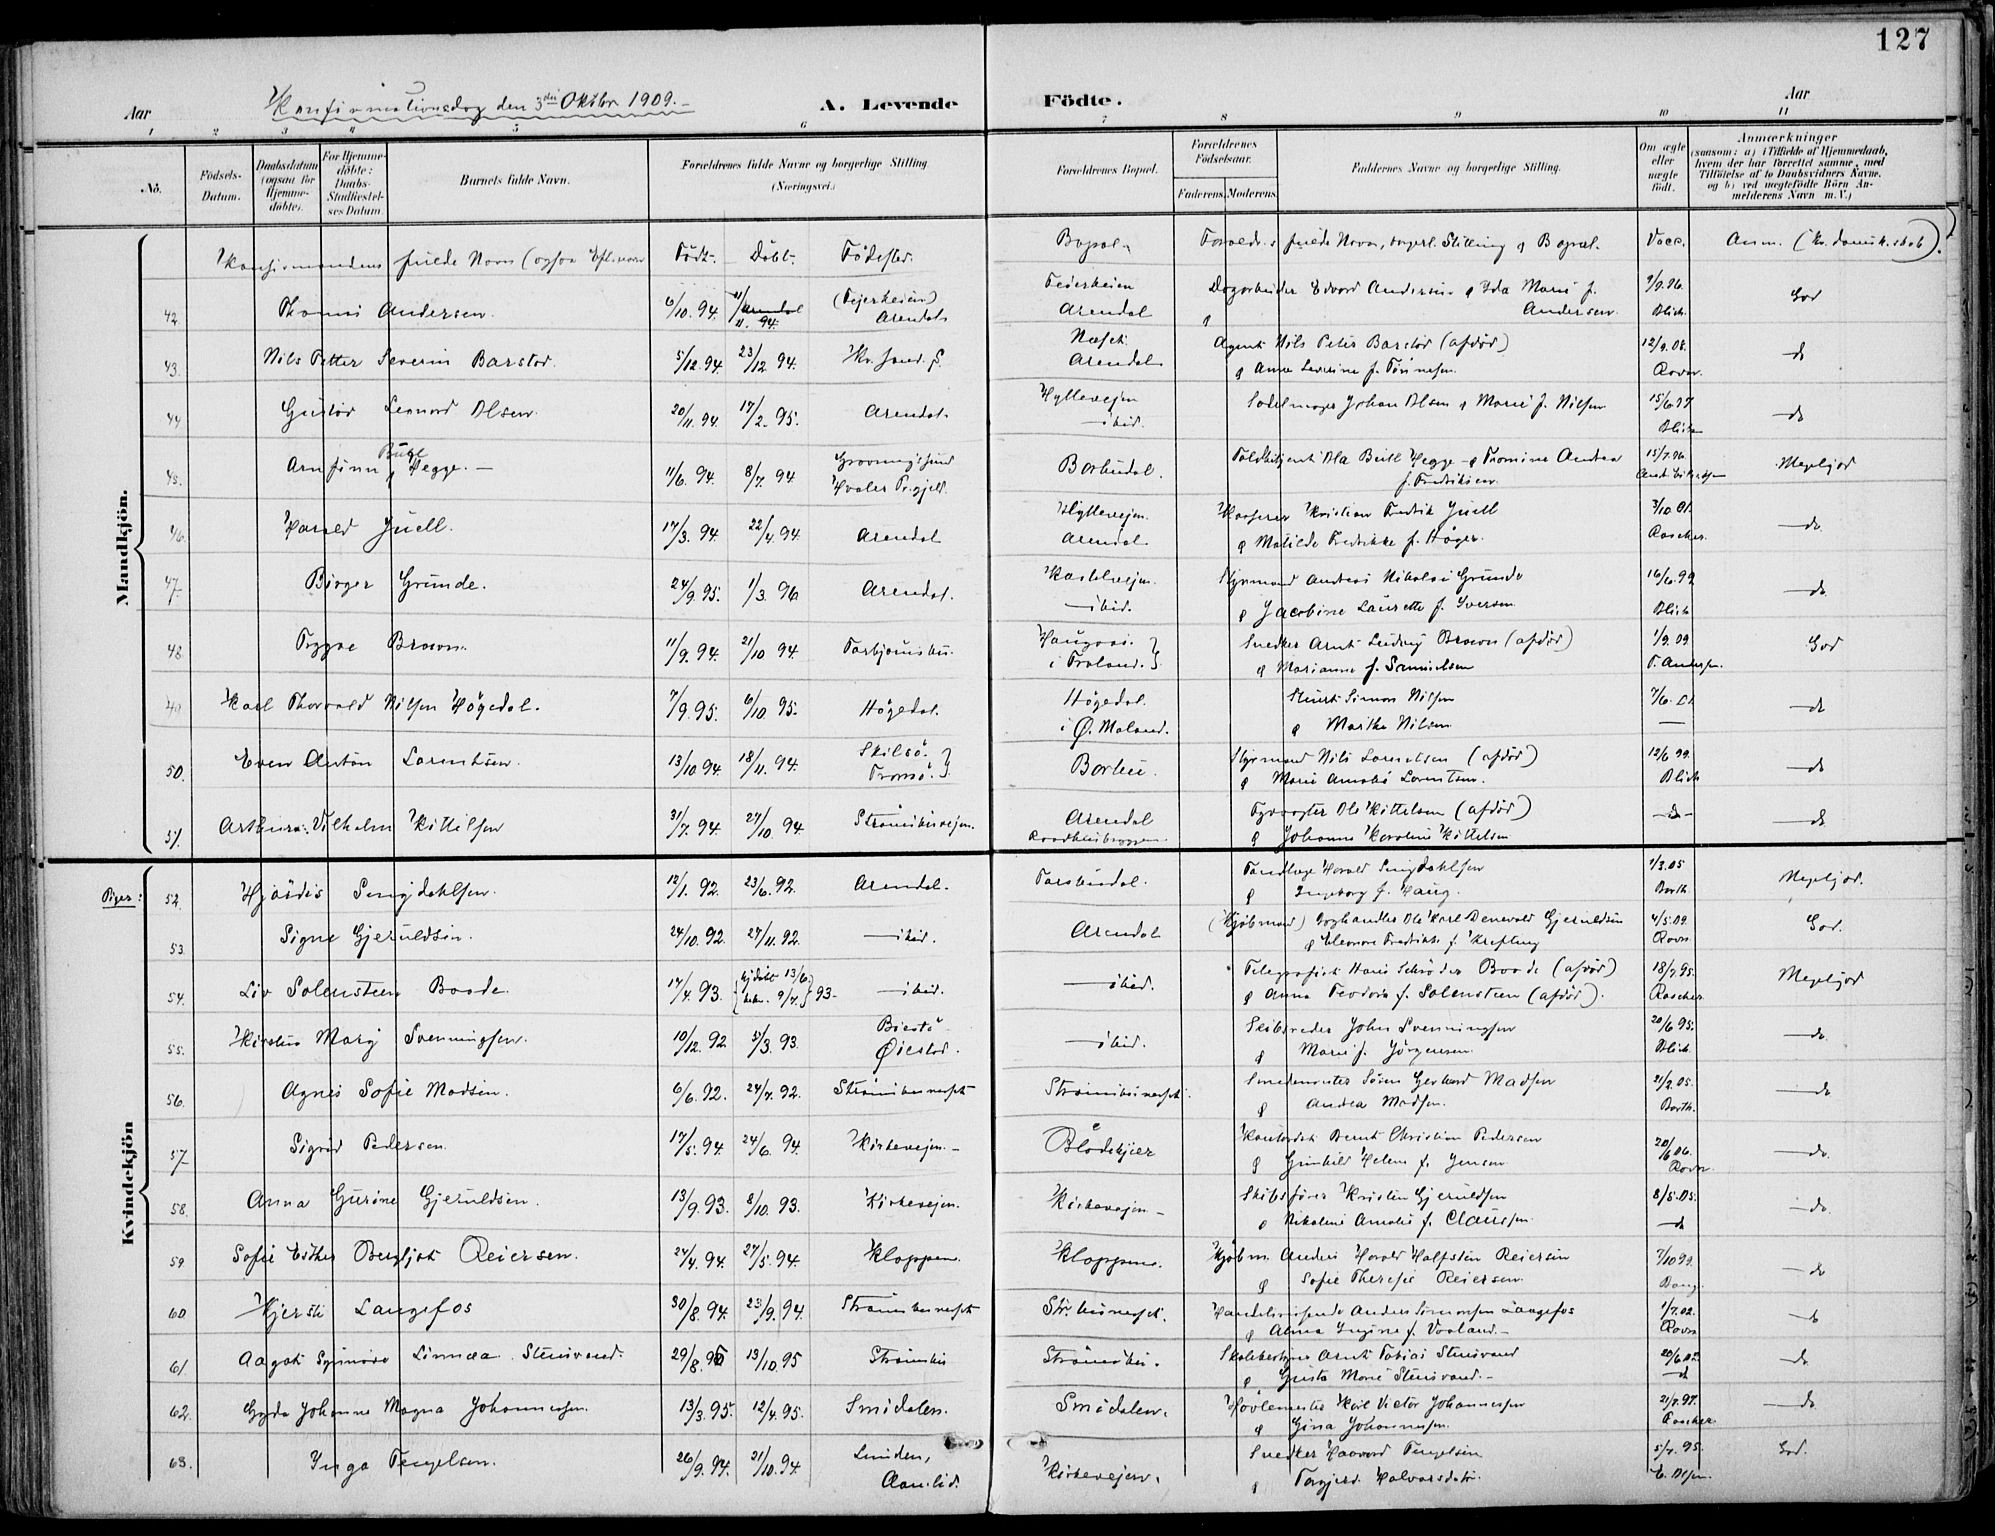 127
Konfirmationsdag den 3die Oktbr 1909.
A. Levende Födte.
Aar Aar
1 2 3 4 5 6 7 8 9 10 11
No.
Födsels-Datum.
Daabsdatum (ogsaa for Hjemme-döbte).
For Hjemme-döbte: Daabs-Stadfæstel-ses Datum.
Barnets fulde Navn.
Forældrenes fulde Navne og borgerlige Stilling (Næringsvei.)
Forældrenes Bopæl.
Forældrenes Födselsaar.
Faderens. Moderens.
Faddernes Navne og borgerlige Stilling.
Om ægte eller uægte födt.
Anmærkninger (saasom: a) i Tilfælde af Hjemmedaab, hvem der har forrettet samme, med Tilföielse af to Daabsvidners Navne, og b) ved uægtefödte Börn Anmelderens Navn m. V.)
Mandkjön.
Konfirmandens fulde Navn Födt. Döbt. Födested. Bopæl. Forældr.s fulde Navn, borgerl. Stilling og Bopæl. Vacc. Anm.
42. Thomas Andersen. 6/10.94. Arendal Arendal Dagarbeider Edvard Andersen og Ida Marie f. Andersen. 9/9.96. Blich. God
43. Nils Petter Severin Barstad. 5/12.94. 23/12.94. Kr.sand. S. Næsk. Arendal Agent Nils Peter Barstad (afdød) 12/9.08. Ravn. do
44. Gustav Leonard Olsen. 20/11.94. 17/2.95. Arendal. Hyllevejen ibid. Sadelmager Johan Olsen og Marie f. Nilsen 15/6.97 Blich do
45. Arnfinn Bull Hegge. 11/6.94. 8/7.94 Hvaler Pr.gjeld. Barbudal. Toldbetjent Ola Bull Hegge og Thomine Andrea f. Fredriksen. 15/7.96. Megetgod
46. Harald Juell. 17/3.94. 22/4.94 Arendal Hyllevejen. Arendal. Kasserer Kristian Fredrik Juell og Matilde Fredrikke f. Höyer. 3/10.01. Rascher. do
47. Birger Grunde. 24/9.95. 1/3.96 Arendal. Kastelvejen. ibid. Styrmand Andreas Nikolai Grunde og Jacobine Laurette f. Iversen. 16/6.99. Blich do
48. Trygve Braaen. 11/9.94. 21/10.94. Torbjörnsbu. i Froland. Snedker Arnt Ludvig (afdød) og Marianne f. Samuelsen 1/9.09. T. Andersen. God
49. Karl Thorvald Nilsen Högedal. 7/9.95. 6/10.95. Högedal. Högedal. i Ö. Moland. Simon Nilsen og Marthe Nilsen 7/6.01. do
50. Even Anton Lorentsen. 13/10.94. 18/11.94. Skilsö. Tromö. Barbu. Styrmand Nils Lorentsen (afdød) og Marie Amalie Lorentsen. 12/6.99. Blich do
51. Arthur Vilhelm Kittilsen 31/7.94. 27/10.94 Strömsbuvejen. Arendal Raadhusbryggen. Ole Kittelsen (afdød) og Johanne Karoline Kittelsen do do
Piger:
Kvindekjön
52. Hjördis Smigdahlsen. 12/1.92. 23/6.92. Arendal. Torsbudal. Tandlæge Harald Smigdahlsen og Ingeborg f. Haug. 1/3.05 Barth. Megetgod.
53. Signe Gjeruldsen. 24/10.92. 27/11.92. ibid. Arendal (Kjöbmand) Ole Karl Gjeruldsen og Eleonore Fredrikke f. Krefting 4/5.09. Ravn. God.
54. Liv Solensteen Baade. 17/4.93. hjdøbt 13/6. 9/7. 93. ibid. ibid. Telegrafist Hans Schröder Baade (afdød) og Anna Teodora f. Solensteen (afdød). 18/7.95. Rascher Megetgod
55. Kirstine Mary Svenningsen. 10/12.92 5/3.93. Öiestad. ibid. Skibsreder John Svenningsen og Marie f. Jörgensen. 20/6.95. Blich. do.
56. Agnes Sofie Madsen. 6/6.92. 24/7.92. Strömsbuneset Strömsbuneset. Smedmester Sören Gerhard Madsen og Andrea Madsen. 21/2.05. Barth. do
57. Sigrid Pedersen. 17/5.94. 24/6.94. Kirkevejen. Blödekjær Bernt Christian Pedersen og Gunhild Helene f. Jensen. 20/6.06. Ravn do.
58. Anna Gurine Gjeruldsen. 13/9.93. 8/10.93. Kirkevejen. Kirkevejen Skibsförer Kristen Gjeruldsen og Nikoline Amalie f. Claussen. 8/5.05. do do.
59 Sofie Esther Bergljot Reiersen. 24/4.94. 27/5.94. Kloppene. Kloppene. Kjöbm. Anders Harald Halfstein Reiersen og Sofie Therese Reiersen 7/10.99. do
60. Kjersti Langefos 30/8.94. 23/9.94. Strömsbuneset Str.buneset. Handelsreisende Anders Simonsen Langefos og Alma Ingine f. Vaaland. 1/7.02. Ravn do
61. Aagot Synnöve Linnæa Stensvand. 29/8.95 13/10.95 Strömsbu Strömsbu. Skolebestyrer Arnt Tobias Stensvand og Gusta Marie Stensvand. 20/6.02. do do
62. Gyda Johanne Magna Johannessen. 13/3.95. 12/4.95. Smidalen. Smidalen. Hövlemester Karl Victor Johannessen og Gina Johannessen. 21/7.97. Rascher do
63. Inga Tengelsen. 26/9.94. 21/10.94. Linden, Aamlid. Kirkevejen. Snedker Haavard Tengelsen og Torgjerd Halvorsdatter. 5/7.95. E. Olsen. God.